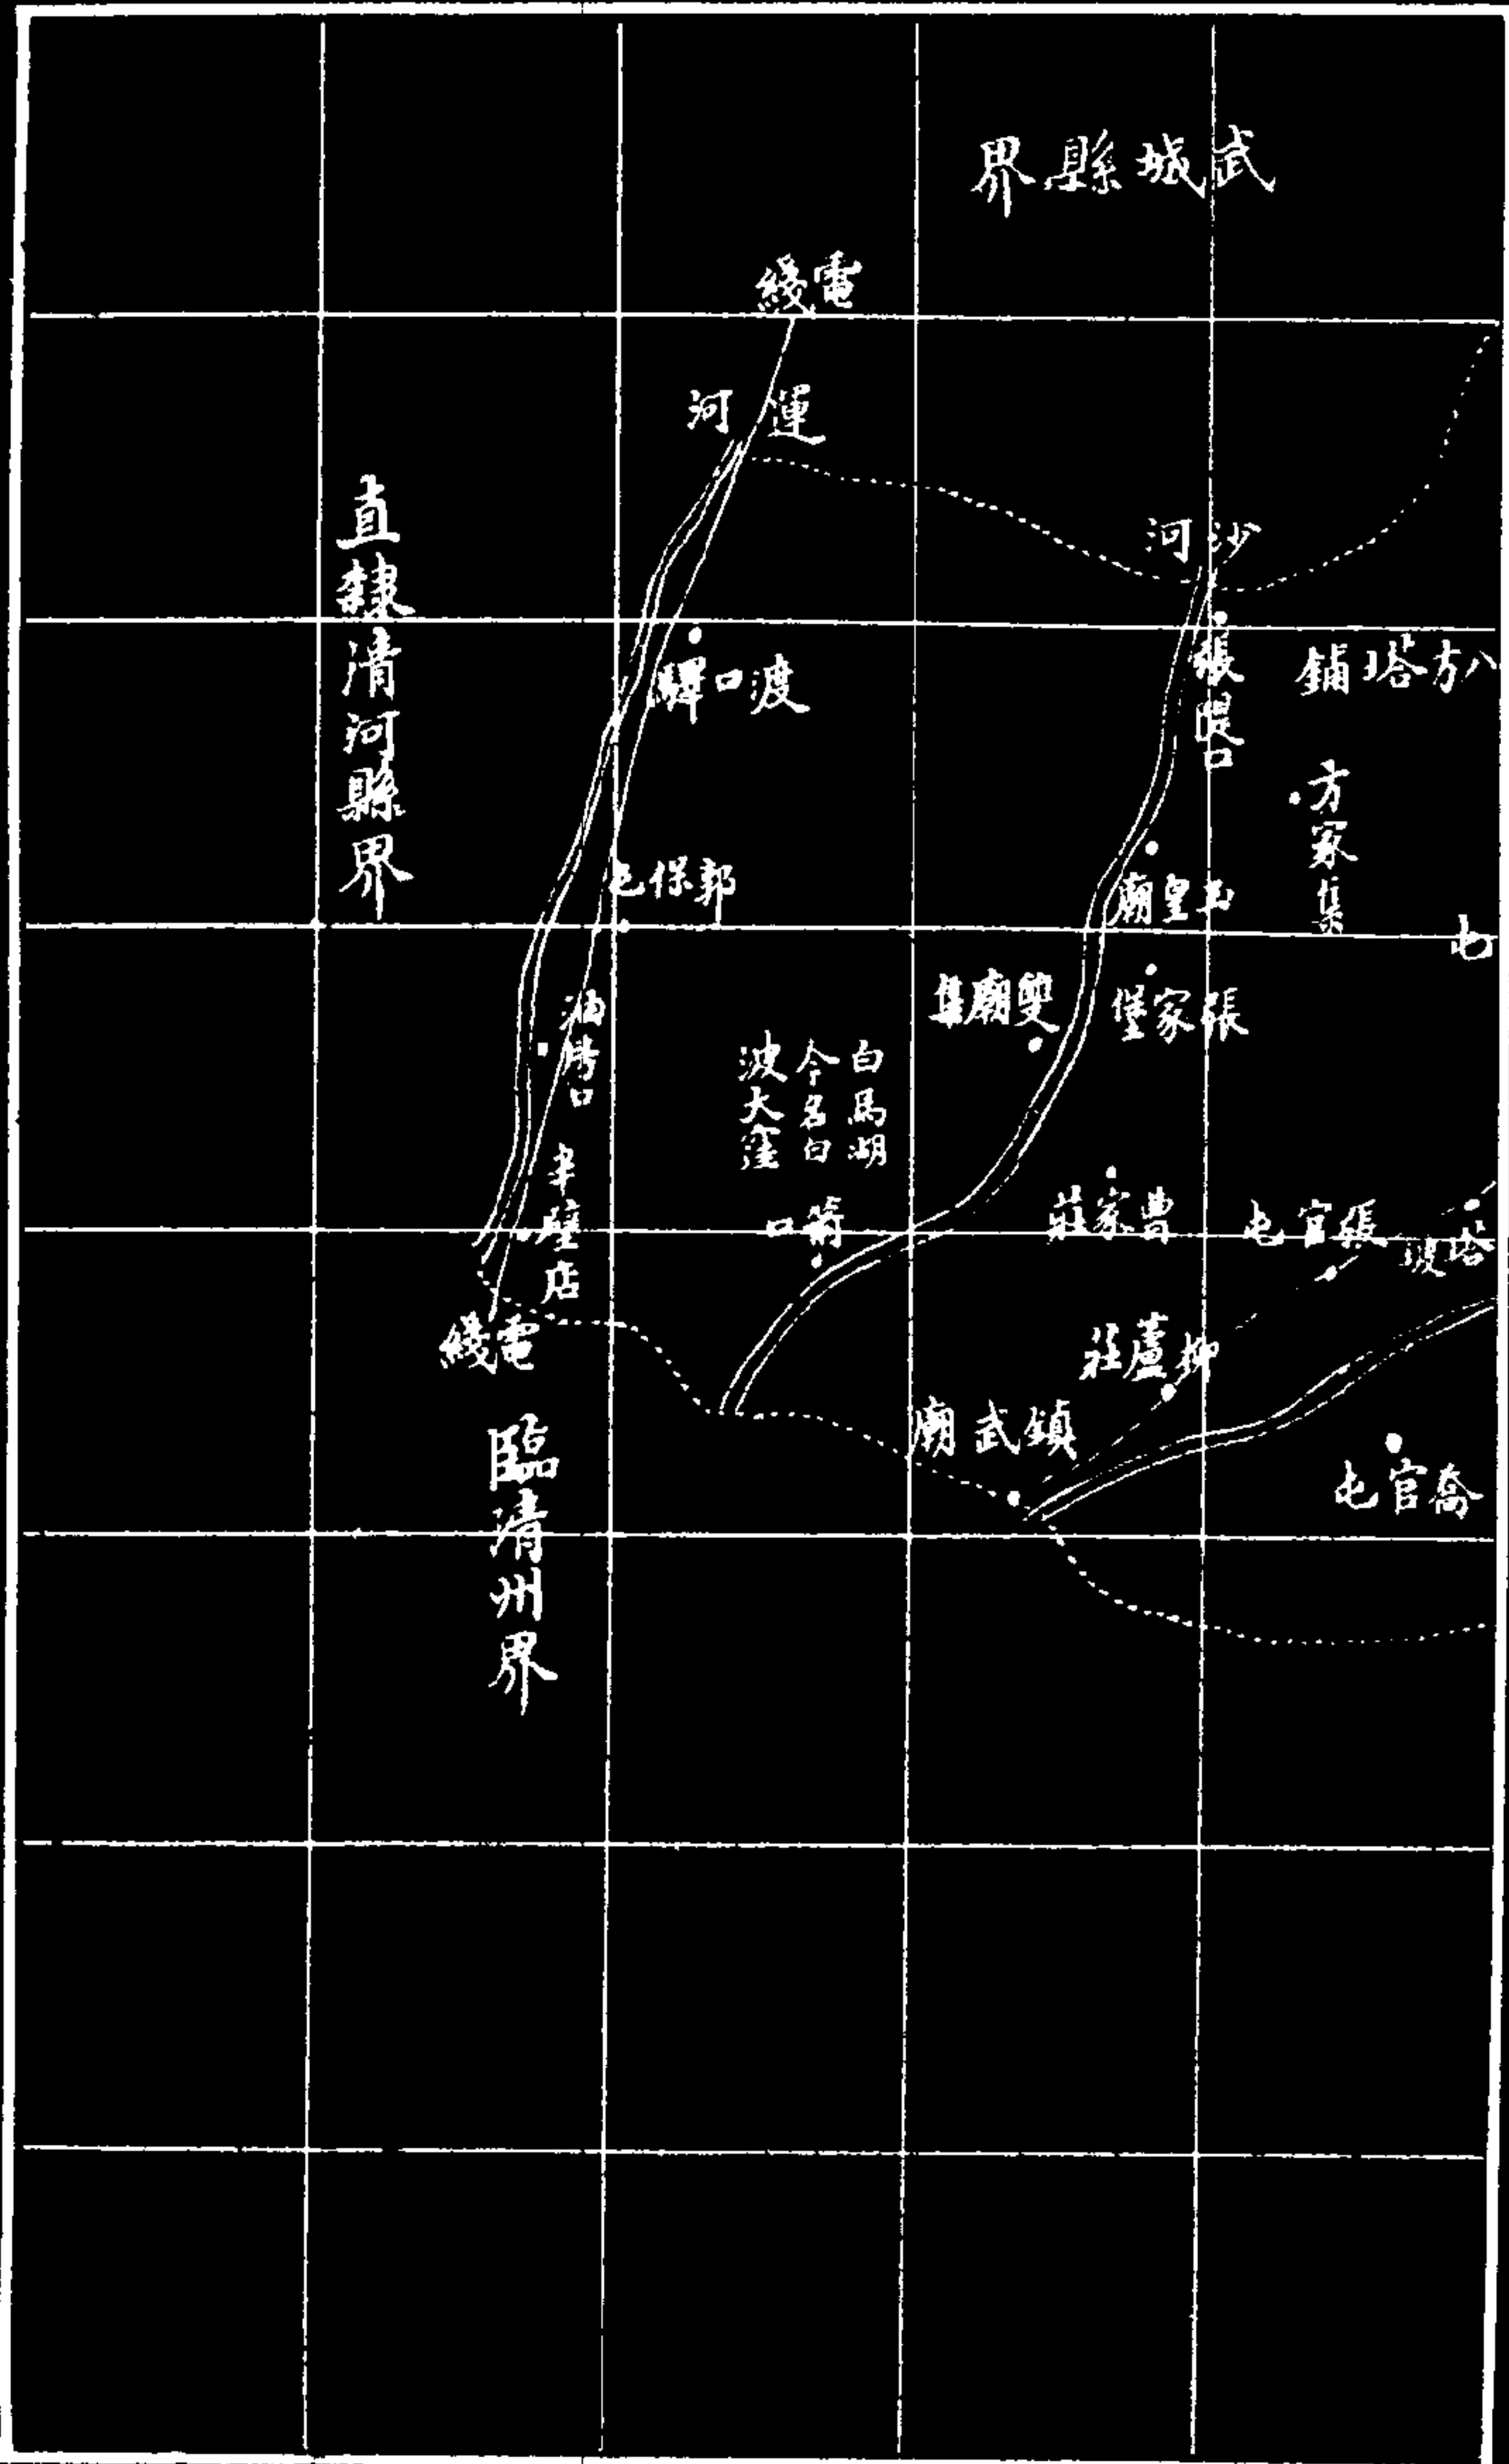 武城縣界
電綫
運河
沙河
直隸清河縣界
張隄口
八方塔鋪
渡口驛
方家集
郭保屯
玉皇廟
屯
張家堡
雙廟集
油坊口
白馬湖
今名白
波大窪
半壁店
箭口
曹家莊
張官屯
塔坡
電綫
柳蘆莊
鎮武廟
喬官屯
臨清州界